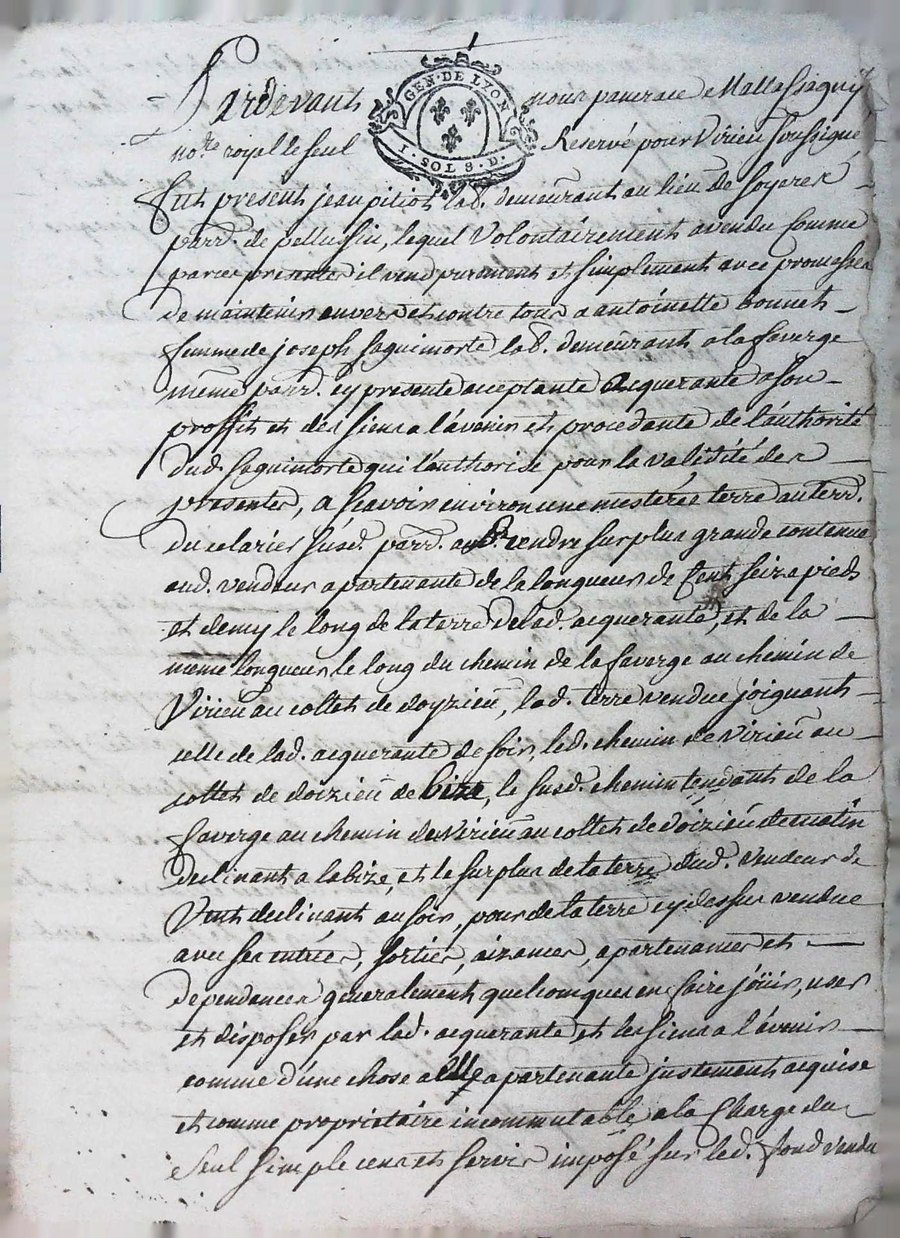 GEN. DE LYON
1. SOL 8. D.
Pardevant nous pancrace Mattassagny
no.re royal le seul Reservé pour Virieu soussigné
fut present jean pitiot lab. demeurant au lieu de soyere
parr. de pellussin, lequel Volontairement a vendu Comme
par ces presentes il vend purement et simplement avec promesses
de maintenir envers et contre tous a antoinette bonnet
femme de joseph saquimorte lab. demeurant a la faverge
même parr. cy presente acceptante acquerante a son
proffit et des siens a l'avenir et procedante de l'authorité
dud. saquimorte qui l'authorise pour la validité des
presentes, a scavoir environ une mesterée terre au terr.
du celarier susd. parr. a prendre sur plus grande contenue
aud. vendeur apartenante de la longueur de Cent seize pieds
et demy le long de la terre de lad. acquerante, et de la
même longueur le long du chemin de la faverge au chemin de
Virieu au collet de doyzieu, lad. terre vendue joignant
celle de lad. acquerante de soir, led. chemin de virieu au
collet de doizieu de bize, le susd. chemin tendant de la
faverge au chemin de Virieu au collet de doizieu de matin
declinant a la bize, et le surplus de la terre dud. vendeur de
Vent declinant au soir, pour de la terre cy dessus vendue
avec ses entrées, sorties, aizances, apartenances et
dependances generalement quelconques en faire joüir, user
et disposer par lad. acquerante et les siens a l'avenir
comme d'une chose a elle apartenante justement acquise
et comme propriétaire incommutable a la Charge du
seul simple cens et servis imposé sur led. fond vendu